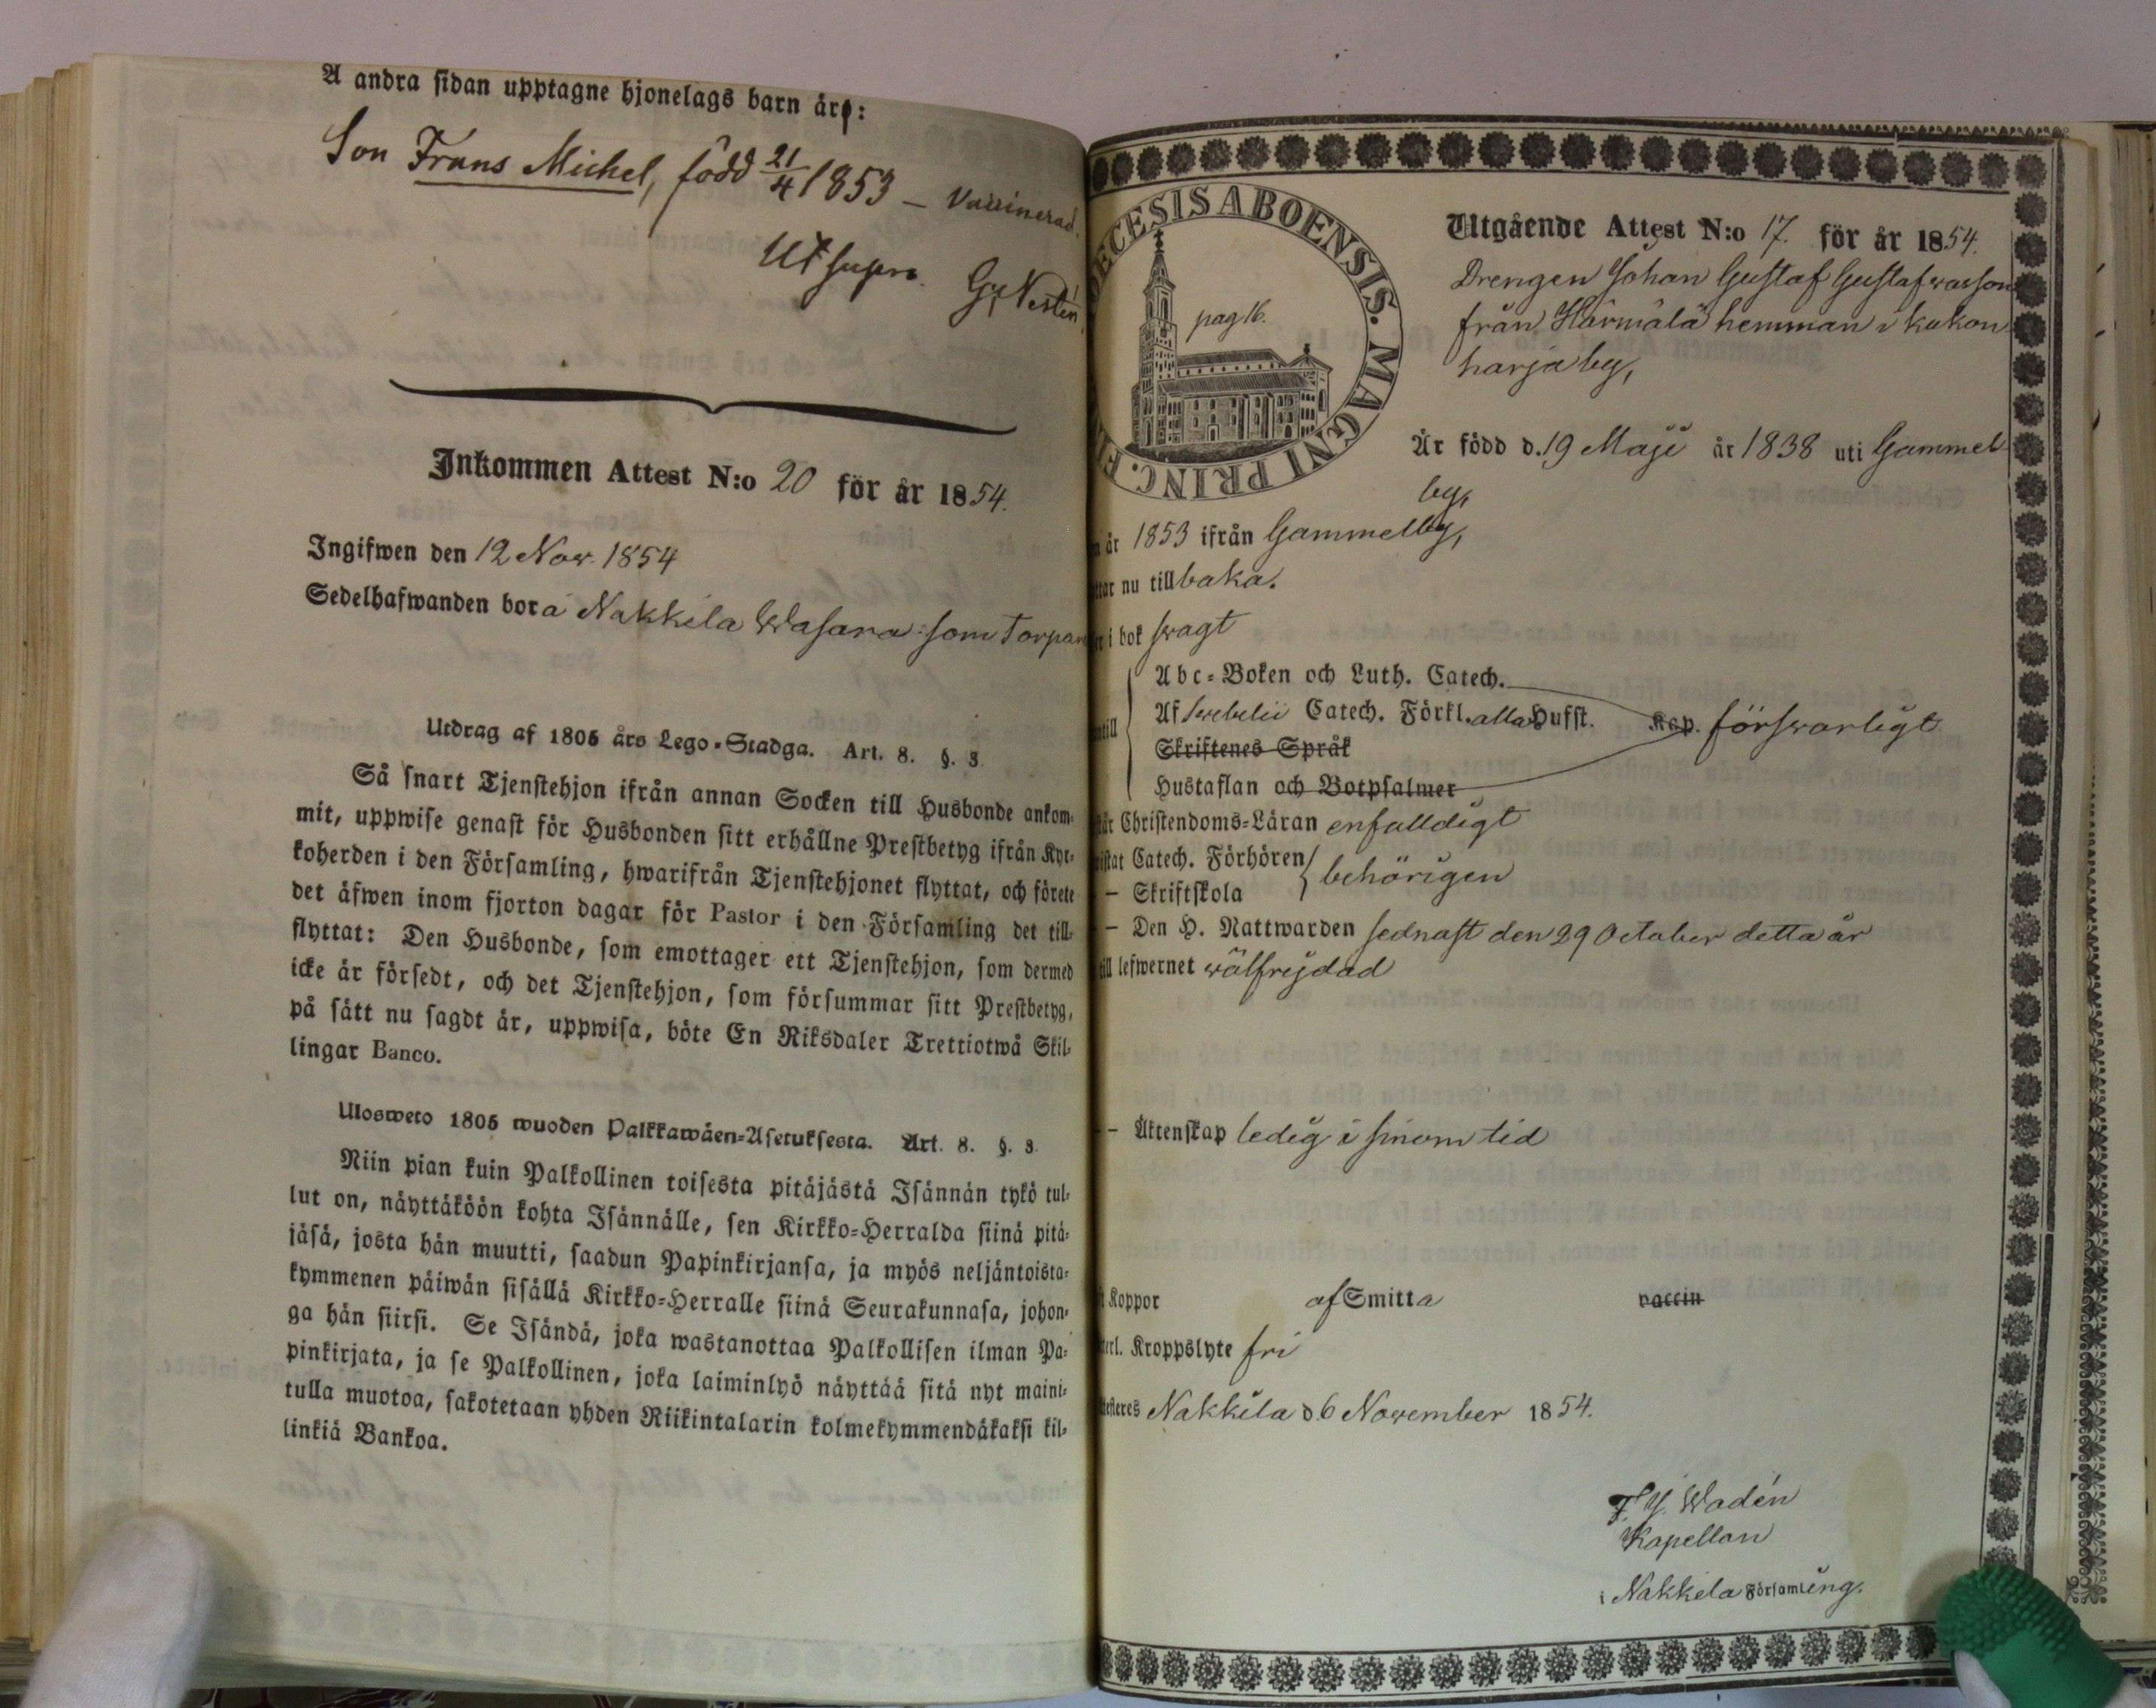 A andra sidan upptagne hjonelags barn äro:
Son Frans Michel, född 21/4 1853 — Vaccinerad.
Ut supra.
G. Nestén
Inkommen Attest N:o 20 för år 1854.
Ingifwen den 12 Nov. 1854
Sedelhafwanden bor å Nakkila Wasara som Torpare
Utdrag af 1805 års Lego-Stadga. Art. 8. §. 3.
Så snart Tjenstehjon ifrån annan Socken till Husbonde ankom-
mit, uppwise genast för Husbonden sitt erhållne Prestbetyg ifrån Kyr-
koherden i den Församling, hwarifrån Tjenstehjonet flyttat, och förete
det äfwen inom fjorton dagar för Pastor i den Församling det till-
flyttat: Den Husbonde, som emottager ett Tjenstehjon, som dermed
icke är försedt, och det Tjenstehjon, som försummar sitt Prestbetyg,
på sätt nu sagdt är, uppwisa, böte En Riksdaler Trettiotwå Skil-
lingar Banco.
Ulosweto 1805 wuoden Palkkawäen-Asetuksesta. Art. 8. §. 3.
Niin pian kuin Palkollinen toisesta pitäjästä Isännän tykö tul-
lut on, näyttäköön kohta Isännälle, sen Kirkko-Herralda siinä pitä-
jäsä, josta hän muutti, saadun Papinkirjansa, ja myös neljäntoista-
kymmenen päiwän sisällä Kirkko-Herralle siinä Seurakunnasa, johon-
ga hän siirsi. Se Isändä, joka wastanottaa Palkollisen ilman Pa-
pinkirjata, ja se Palkollinen, joka laiminlyö näyttää sitä nyt maini-
tulla muotoa, sakotetaan yhden Riikintalarin kolmekymmendäkaksi kil-
linkiä Bankoa.
ECESIS ABOENSIS. MAGNI PRINC. FI
pag 16.
Utgående Attest N:o 17. för år 1854.
Drengen Johan Gustaf Gustafsson
från Härmälä hemman i Kukon
harja by,
Är född d. 19 Maji år 1838 uti Gammel
by,
år 1853 ifrån Gammelby,
nu tillbaka.
i bok swagt
Abc-Boken och Luth. Catech.
Af Swebelii Catech. Förkl. alla Hufst. Kap. förswarligt
Skriftenes Språk
Hustaflan och Botpsalmer
Christendoms-Läran enfalldigt
Catech. Förhören
behörigen
— Skriftskola
— Den H. Nattwarden sednast den 29 October detta år
lefwernet wälfrejdad
— Äktenskap ledig i sinom tid
Koppor af Smitta vaccin
Kroppslyte fri
Nakkila d. 6 November 1854.
F. Y. Wadén
Kapellan
i Nakkila Församling.